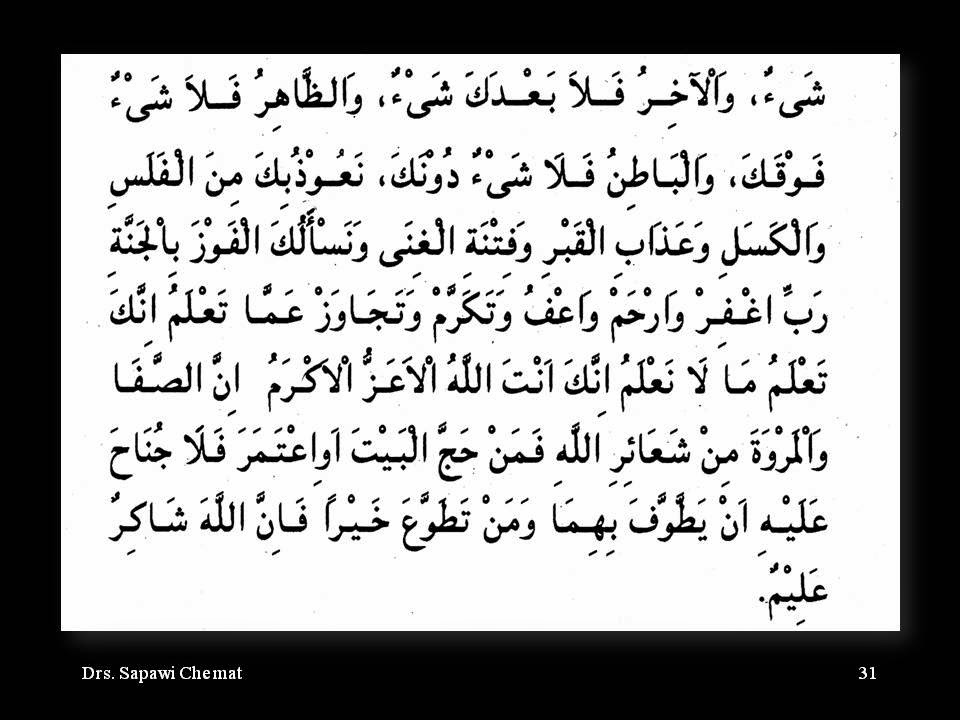 شَىْءٌ، وَاْلآخِرُ فَلاَ بَعْدَكَ شَىْءٌ، وَالظَّاهِرُ فَلاَ شَىْءٌ
فَوْقَكَ، وَالْبَاطِنُ فَلَا شَىْءٌ دُوْنَكَ، نَعُوْذُبِكَ مِنَ الْفَلَسِ
وَالْكَسَلِ وَعَذَابِ الْقَبْرِ وَفِتْنَةِ الْغِنَى وَنَسْأَلُكَ الْفَوْزَ بِاْلجَنَّةِ
رَبِّ اغْفِرْ وَارْحَمْ وَاعْفُ وَتَكَرَّمْ وَتَجَاوَزْ عَمَّا تَعْلَمُ اِنَّكَ
تَعْلَمُ مَا لَا نَعْلَمُ اِنَّكَ اَنْتَ اللَّهُ اْلاَعَزُّ اْلاَكْرَمُ اِنَّ الصَّفَا
وَاْلمَرْوَةَ مِنْ شَعَائِرِ اللَّهِ فَمَنْ حَجَّ الْبَيْتَ اَوِاعْتَمَرَ فَلَا جُنَاحَ
عَلَيْهِ اَنْ يَطَّوَّفَ بِهِمَا وَمَنْ تَطَوَّعَ خَيْرًا فَاِنَّ اللَّهَ شَاكِرٌ
عَلِيْمٌ.
Drs. Sapawi Chemat 31